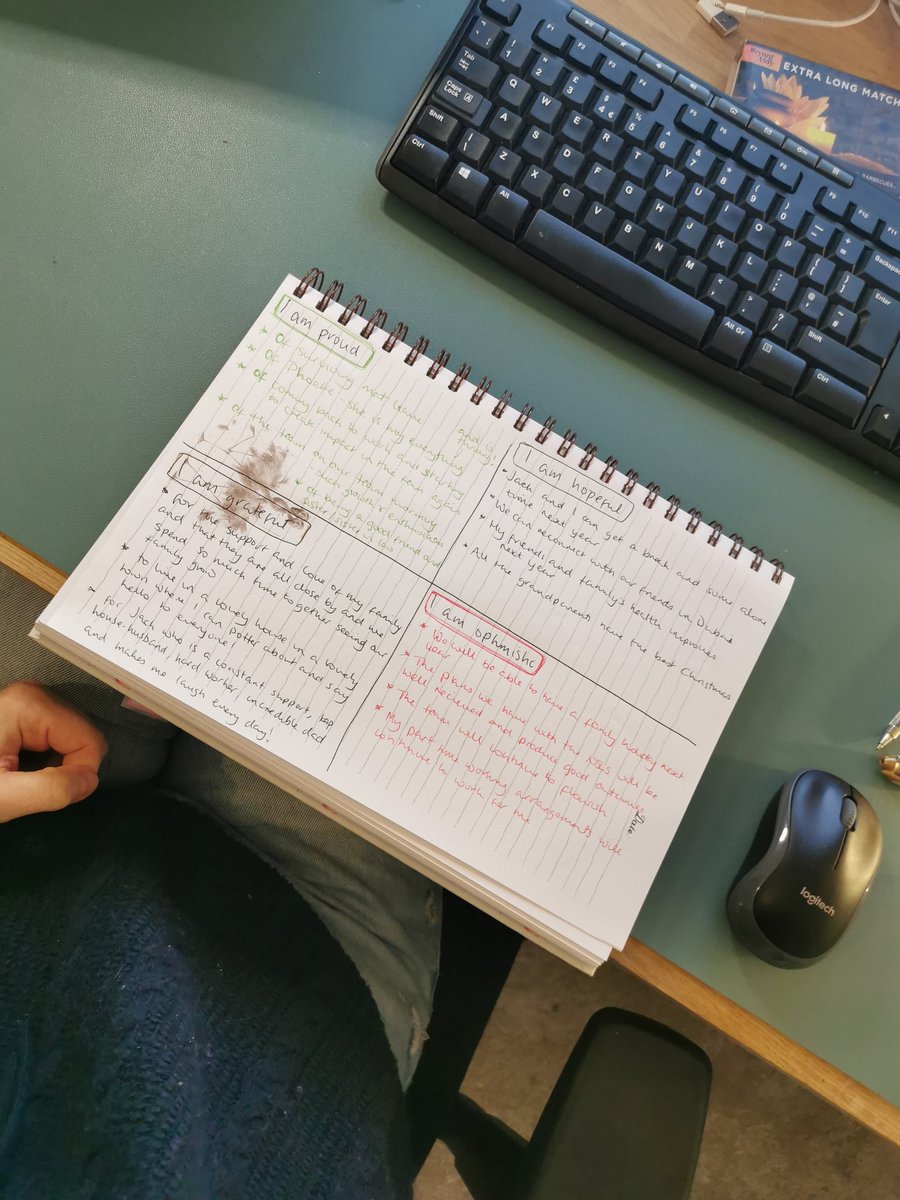 I am proud
* Of surviving mat leave
* Of Phoebe - she is my everything
* Of coming back to work and starting
to create impact in the team again
and family!
* Of the team on our team morning
- such growth & enthusiasm
* Of being a good friend and
sister/sister in law
I am grateful
* For the support and love of my family
and that they are all close by and we
spend so much time together seeing our
family grow
* to live in a lovely house in a lovely
town where I can potter about and say
hello to everyone!
* for Jach who is a constant support, top
house-husband, hard worker, incredible dad
and makes me laugh every day!
I am hopeful
* Jach and I can get a break and some alone
time next year
* We can reconnect with our friends in Dubai
* My friends and family's health improves
next year
* All the grandparents have the best Christmas
I am optimistic
* We will be able to have a family holiday next
year
* The plans we have with the will be
well recieved and produce good outcomes
* The team will continue to flourish
* My part time working arrangements will
continue to work for me.
Date:
EXTRA LONG MATCH
BARBECUES.
logitech
F1 F2 F3 F4 F5 F6 F7 F8 F9 F10 F11
1 2 3 4 5 6 7 8 9 0 Backspace
Tab Q W E R T Y U I O P Enter
Caps Lock A S D F G H J K L
Shift Z X C V B N M Shift
Ctrl Alt Alt Gr Ctrl